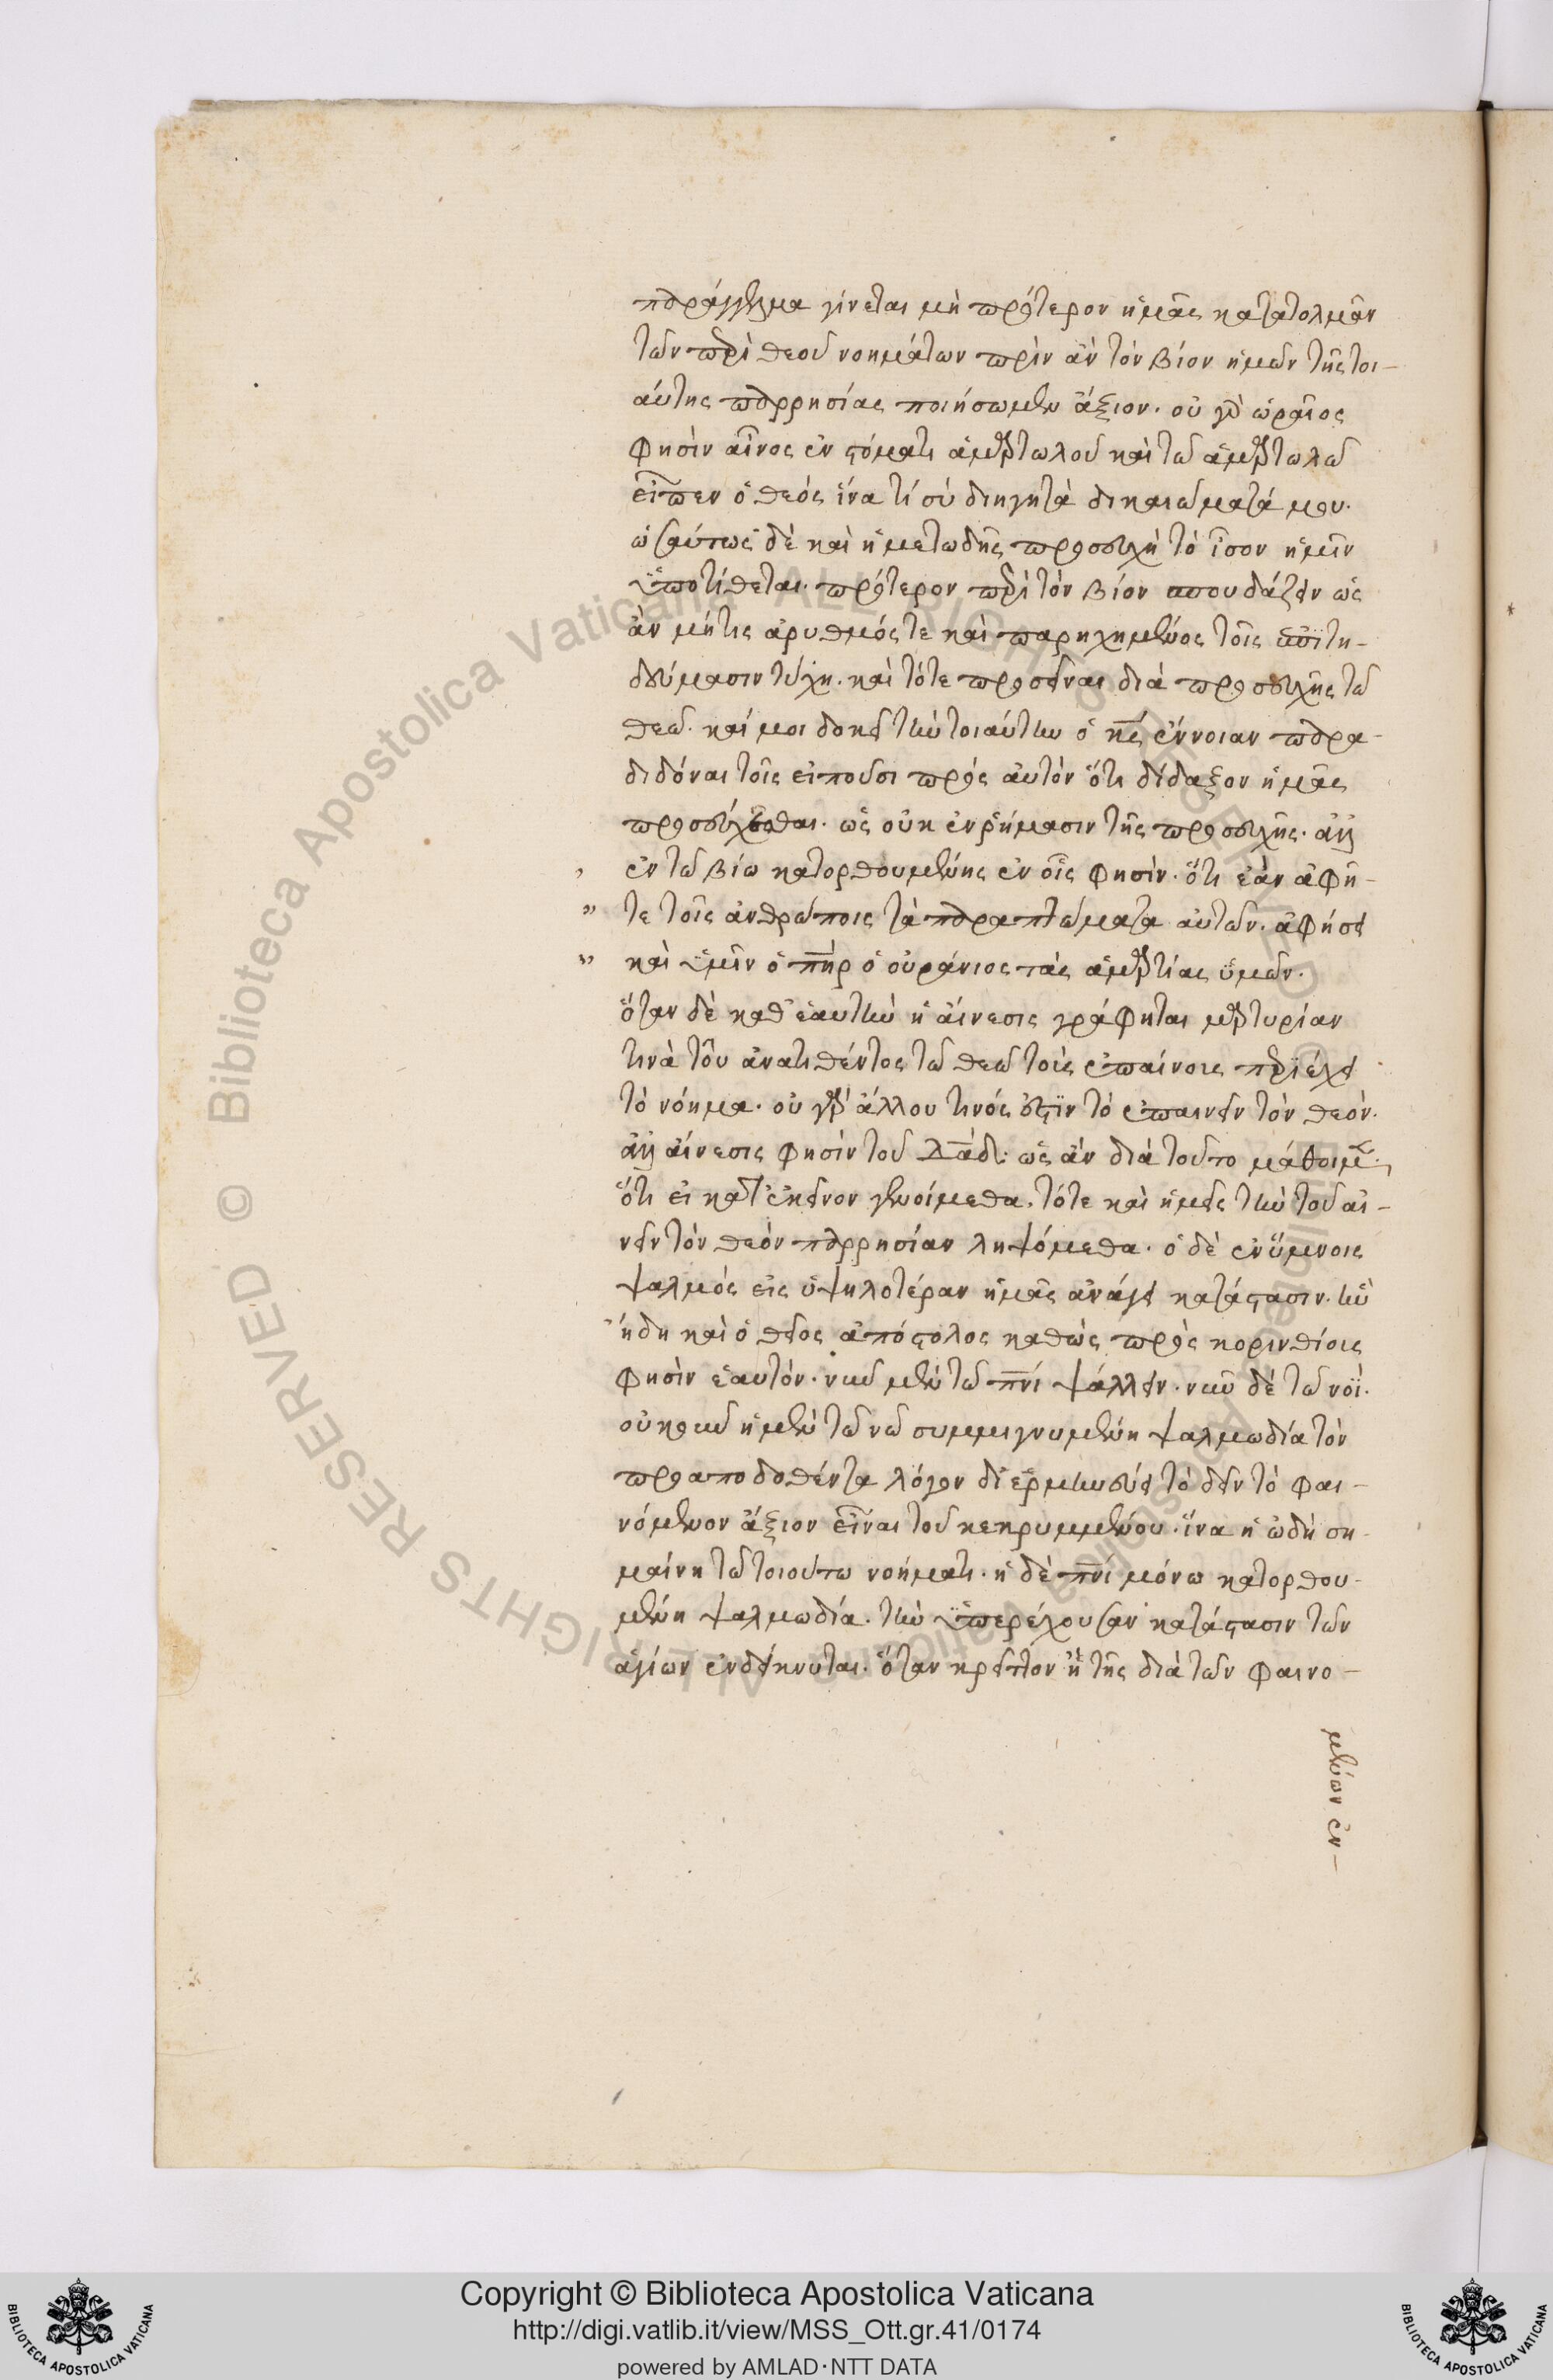 παράγγελμα γίνεται μὴ πρότερον ἡμᾶς κατατολμᾶν
τῶν περὶ θεοῦ νοημάτων πρὶν ἂν τὸν βίον ἡμῶν τῆς τοι-
αύτης παρρησίας ποιήσωμεν ἄξιον. οὐ γὰρ ὡραῖος
φησὶν αἶνος ἐν στόματι ἁμαρτωλοῦ καὶ τῶ ἁμαρτωλῶ
εἶπεν ὁ θεός ἵνα τί σὺ διηγῆ τὰ δικαιώματά μου.
ὡσαύτως δὲ καὶ ἡ μετωδῆς προσευχὴ τὸ ἴσον ἡμῖν
ὑποτίθεται. πρότερον περὶ τὸν βίον σπουδάζειν ὡς
ἂν μήτις ἀρυθμός τε καὶ παρηχημένος τοῖς ἐπιτη-
δεύμασιν τύχη. καὶ τότε προσεῖναι διὰ προσευχῆς τῶ
θεῶ. καί μοι δοκεῖ τὴν τοιαύτην ὁ κ̅ς̅ ἔννοιαν παρα-
διδόναι τοῖς εἰποῦσι πρὸς αὐτὸν ὅτι δίδαξον ἡμᾶς
προσεύχεσθαι. ὡς οὐκ ἐν ῥήμασιν τῆς προσευχῆς. ἀλλ
ἐν τῶ βίω κατορθουμένης ἐν οἷς φησὶν. ὅτι ἐὰν ἀφῆ-
τε τοῖς ἀνθρώποις τὰ παραπτώματα αὐτῶν. ἀφήσει
καὶ ὑμῖν ὁ π̅η̅ρ ὁ οὐράνιος τὰς ἁμαρτίας ὑμῶν.
ὅταν δὲ καθ' ἑαυτὴν ἡ αἴνεσις γράφηται μαρτυρίαν
τινὰ τοῦ ἀνατιθέντος τῶ θεῶ τοὺς ἐπαίνους περιέχει
τὸ νόημα. οὐ γὰρ ἄλλου τινός ἐστϊν τὸ ἐπαινεῖν τὸν θεόν.
ἀλλ αἴνεσις φησὶν τοῦ δ̅α̅δ̅. ὡς ἂν διὰ τούτο μάθοιμεν.
ὅτι εἰ κατ' ἐκεῖνον γενοίμεθα. τότε καὶ ἡμεῖς τὴν τοῦ αἰ-
νεῖν τὸν θεὸν παρρησίαν ληψόμεθα. ὁ δὲ ἐν ὕμνοις
ψαλμὸς εἰς ὑψηλοτέραν ἡμᾶς ἀνάγει κατάστασιν. ἣν
ἤδη καὶ ὁ θεῖος ἀπόστολος καθὼς πρὸς κορινθίοις
φησὶν ἑαυτόν. νῦν μὲν τῶ π̅ν̅ι̅ ψάλλειν. νῦν δὲ τῶ νοΐ.
οὐκοῦν ἡ μὲν τῶ νῶ συμμιγνυμένη ψαλμωδία τὸν
προαποδοθέντα λόγον διερμηνεύει τὸ δεῖν τὸ φαι-
νόμενον ἄξιον εἶναι τοῦ κεκρυμμένου. ἵνα ἡ ὠδὴ ση-
μαίνη τῶ τοιούτω νοήματι. ἡ δὲ π̅ν̅ι̅ μόνω κατορθου-
μένη ψαλμωδία. τὴν ὑπερέχουσαν κατάστασιν τῶν
ἁγίων ἐνδείκνυται. ὅταν κρεῖττον ἢ τῆς διὰ τῶν φαινο-
μένων ἐν-
Copyright © Biblioteca Apostolica Vaticana
http://digi.vatlib.it/view/MSS_Ott.gr.41/0174
powered by AMLAD·NTT DATA
BIBLIOTECA APOSTOLICA VATICANA
BIBLIOTECA APOSTOLICA VATICANA
© Biblioteca Apostolica Vaticana ALL RIGHTS RESERVED